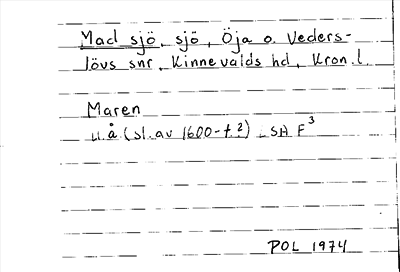 Mad sjö, sjö, Öja o. Veders-
lövs snr, Kinnevalds hd, Kron. l.
Maren
u.å. (sl. av 1600-t.?) SA F3
POL 1974